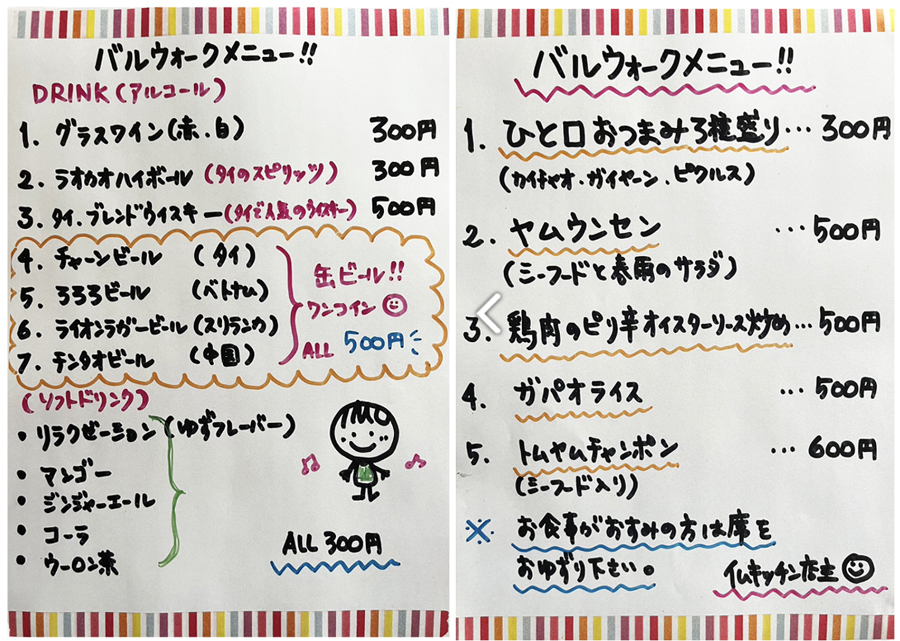 バルウォークメニュー!!
DRINK(アルコール)
1. グラスワイン(赤.白) 300円
2. ラオカオハイボール(タイのスピリッツ) 300円
3. タイ.ブレンドウイスキー(タイで人気のウイスキー) 500円
4. チャーンビール (タイ)
5. 333ビール (ベトナム)
6. ライオンラガービール(スリランカ)
7. チンタオビール (中国)
缶ビール!!
ワンコイン
ALL 500円
(ソフトドリンク)
• リラクゼーション(ゆずフレーバー)
• マンゴー
• ジンジャーエール
• コーラ
• ウーロン茶
ALL 300円
バルウォークメニュー!!
1. ひと口おつまみ3種盛り… 300円
(カイチャオ.ガイヤーン.ピクルス)
2. ヤムウンセン …500円
(シーフードと春雨のサラダ)
3. 鶏肉のピリ辛オイスターソース炒め…500円
4. ガパオライス …500円
5. トムヤムチャンポン … 600円
(シーフード入り)
※ お食事がおすみの方は席を
おゆずり下さい。
イムキッチン店主